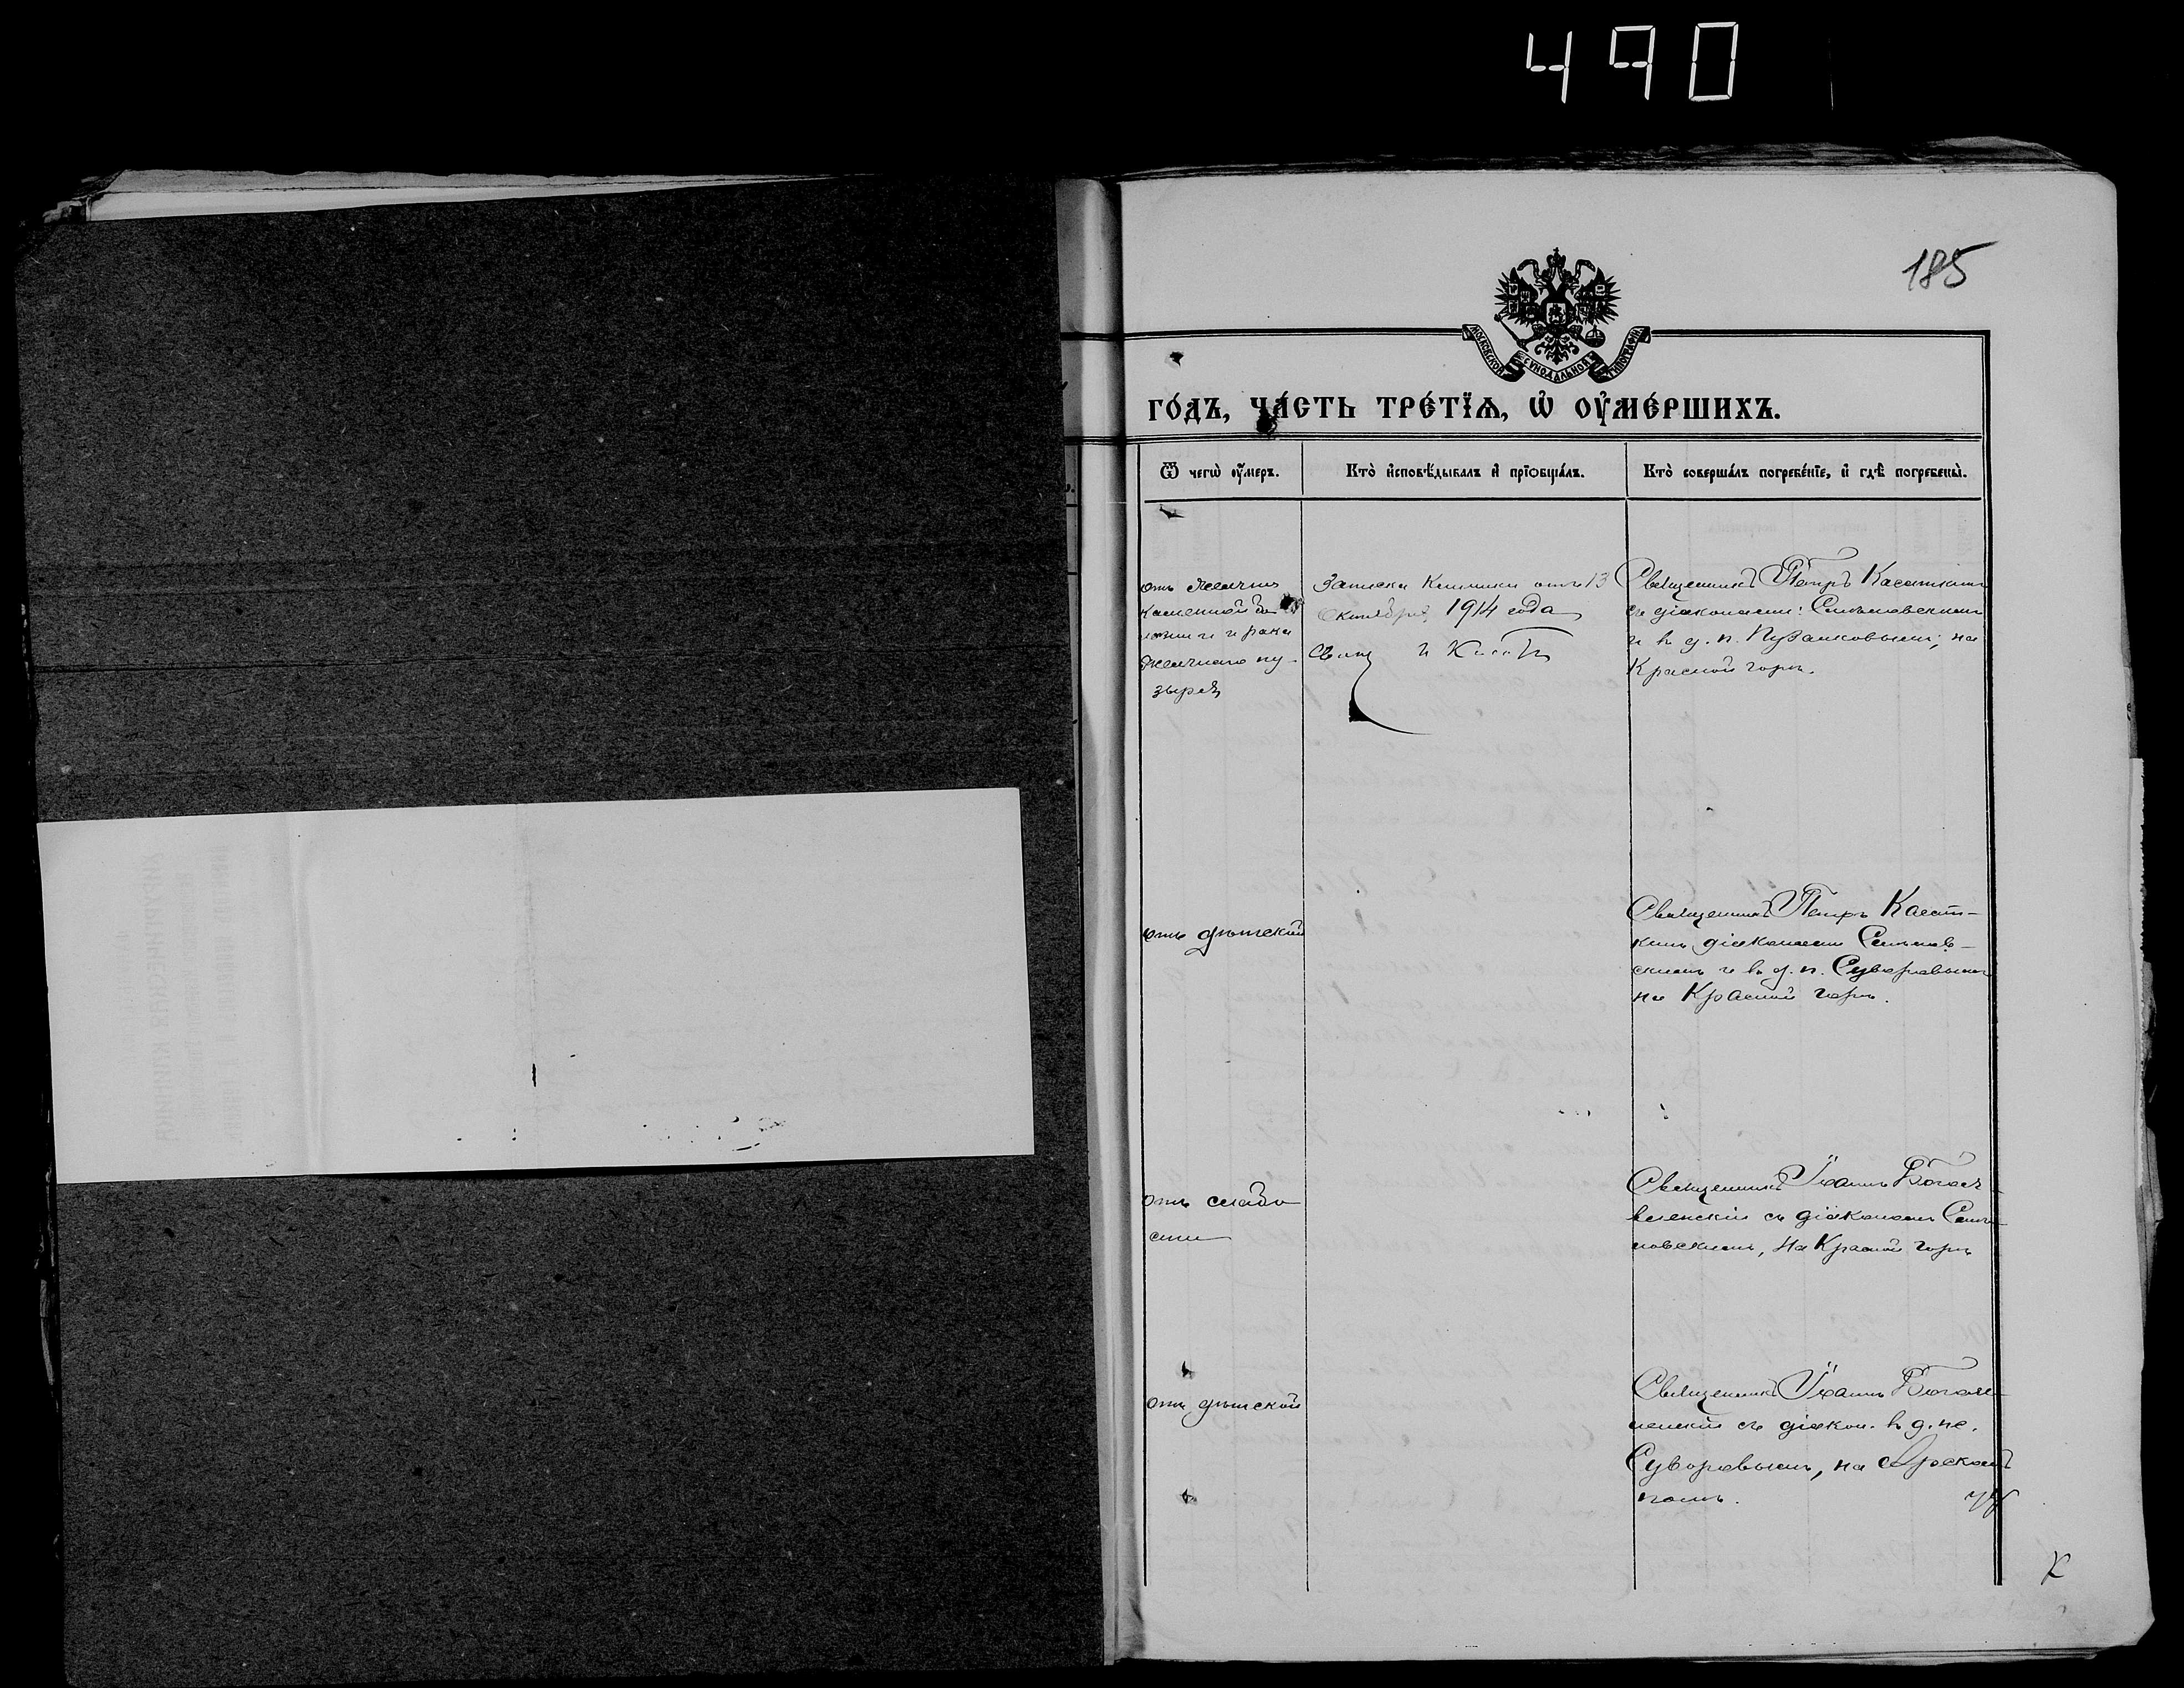 490
185
МОСКОВСКОЙ СѴНОДАЛЬНОЙ ТИПОГРАФІИ
ГО́ДЪ, ЧА́СТЬ ТРЕ́ТЇѦ, Ѡ҆ ОУ҆МЕ́РШИХЪ.
Ѿ чегѡ̀ оу҆́меръ.
Кто̀ и҆сповѣ́дывалъ и҆ прїѡбща́лъ.
Кто̀ соверша́лъ погребе́нїе, и҆ гдѣ̀ погребены̀.
отъ желчно
каменной бо
лѣзни и рака
желчнаго пу-
зыря
Записка Клиники отъ 13
Октября 1914 года
Священникъ Петръ Касаткинъ
съ діаконами:
и в. д. п. Пузаковымъ; на
Красной горѣ.
отъ дѣтской
Священникъ Петръ Касат-
кинъ діаконами
скимъ и в. д. п. Суворовымъ
на Красной горѣ.
отъ слабо
сти
Священникъ Іоаннъ Богояв
ленскій съ діакономъ
новскимъ, на Красной горѣ
отъ дѣтской
Священникъ Іоаннъ Богояв-
ленскій съ діакон. в. д. пс.
Суворовымъ, на Арскомъ
полѣ.